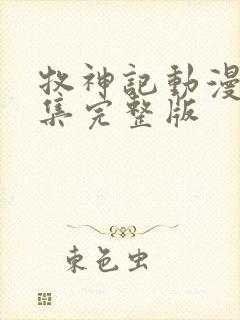 牧神記動漫
集完整版
東色虫